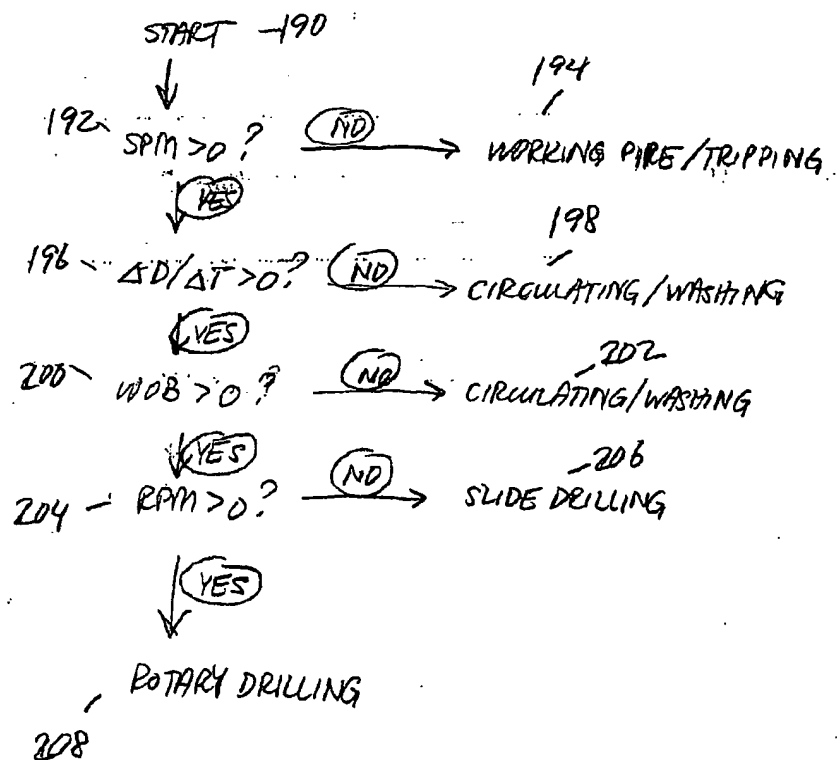 START -190
194
192 SPM>0? NO WORKING PIPE/TRIPPING
YES
198
196 ΔD/ΔT>0? NO CIRCULATING/WASHING
YES
202
200 WOB>0? NO CIRCULATING/WASHING
YES
206
204 - RPM>0? NO SLIDE DRILLING
YES
ROTARY DRILLING
208